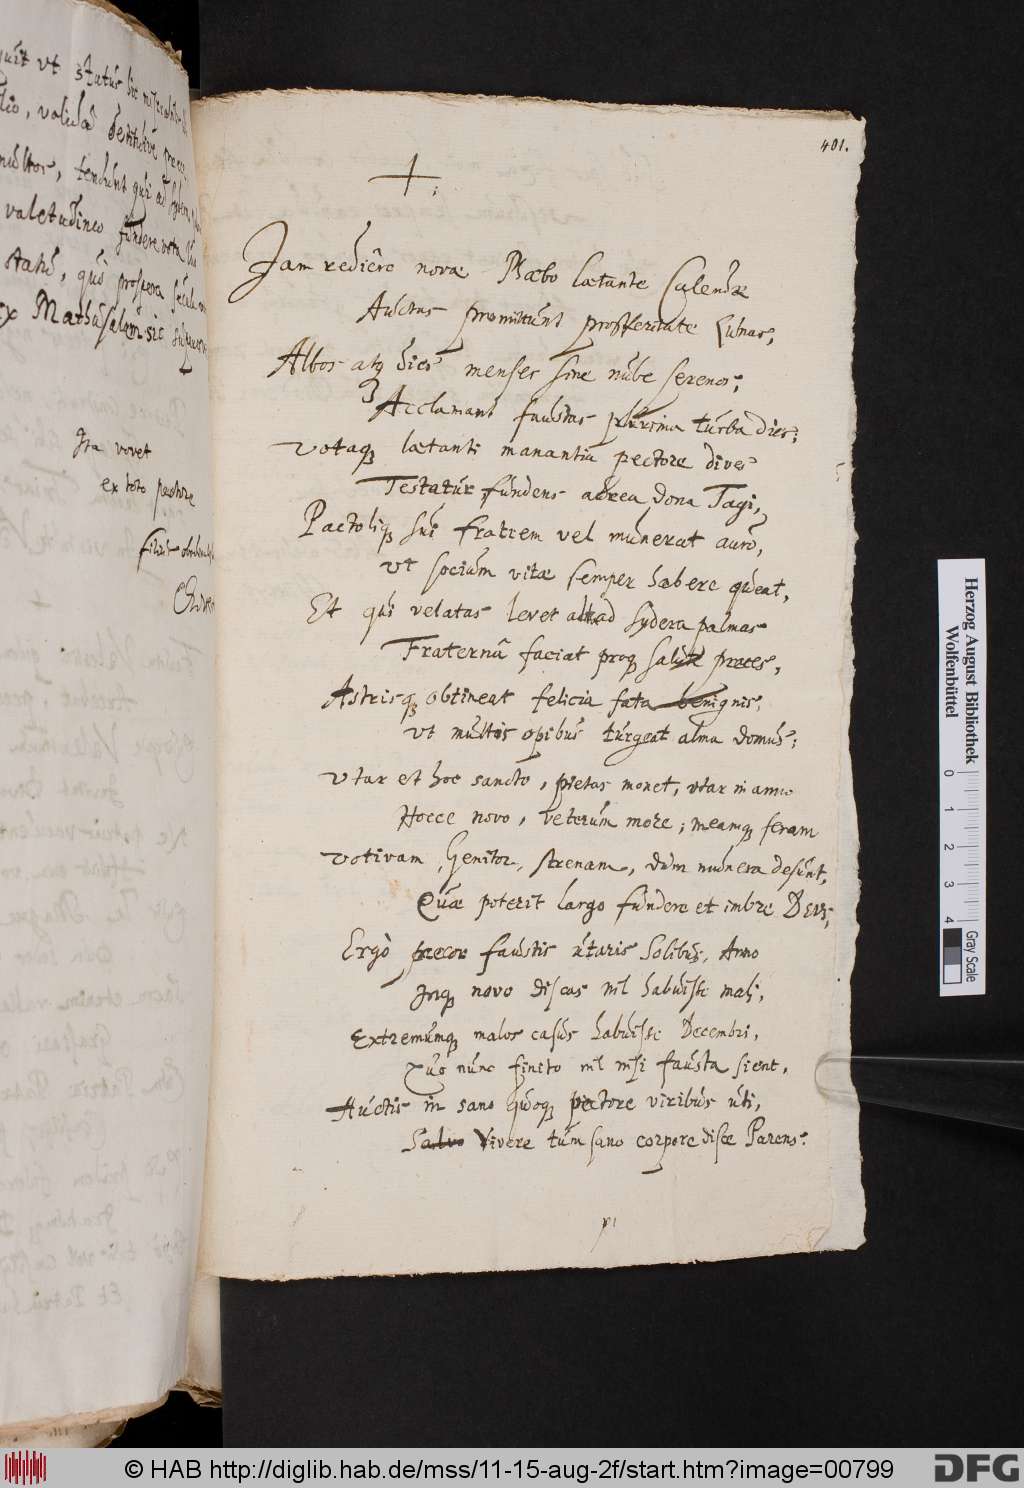 quit ut status hic
lio, votis ad
multos, tendunt qui ad
valetudine fundere vota
statu, quo prospera secula
ex Mathusalem sic
Ita vovet
ex toto pectore
filius
401.
+
Jam rediêre novæ Phæbo lætante Calendæ
Auctas promittunt prosperitate Lunas,
Albos atq3 dies menses sine nube serenos;
Acclamant faustas plurima turba dies;
Votaq3 lætanti manantia pectore dives
Testatur fundens aurea dona Tagi,
Pactoliq3 sui fratrem vel munerat auro,
Ut socium vitæ semper habere queat,
Et qui velatas levet ad sydera palmas
Fraternâ faciat proq3 salute preces,
Astrisq3 obtineat felicia fata benignis,
Ut multis opibus turgeat alma domus;
Utar et hoc sancto, pietas monet, utar in anno
Hocce novo, veterum more; meamq3 feram
Votivam, Genitor, strenam, dum munera desunt,
Quæ poterit largo fundere et imbre Deus;
Ergò precor faustis utaris Solibus, Anno
Inq3 novo discas nil habuisse mali,
Extremumq3 malos casus habuisse Decembri,
Quo nunc finito nil nisi fausta sient,
Auctis in sano quoq3 pectore viribus uti,
Salvo Vivere tum sano corpore disce Parens.
Herzog August Bibliothek
Wolfenbüttel
0 1 2 3 4
Gray Scale
© HAB http://diglib.hab.de/mss/11-15-aug-2f/start.htm?image=00799
DFG